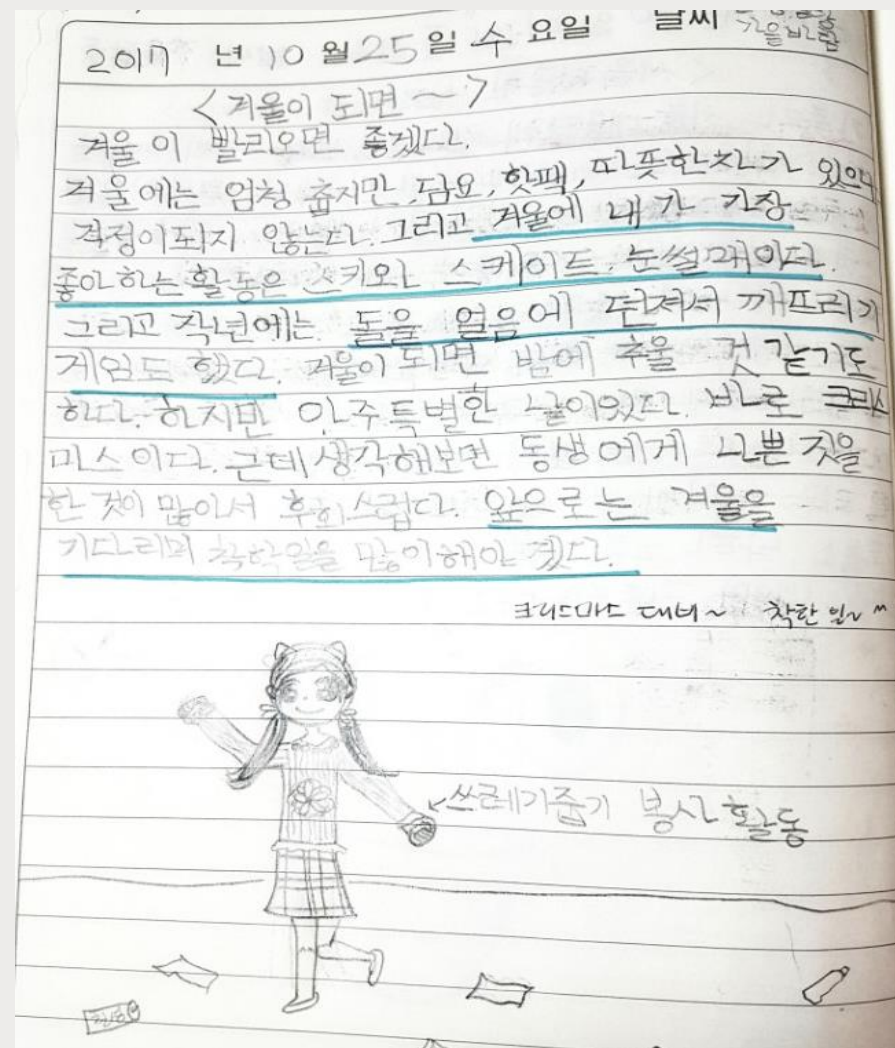 2017 년 10 월 25 일 수 요일 날씨
가을바람
<겨울이 되면 ~>
겨울이 빨리오면 좋겠다.
겨울에는 엄청 춥지만, 담요, 핫팩, 따뜻한차가 있으니
걱정이되지 않는다. 그리고 겨울에 내가 가장
좋아하는활동은 스키와 스케이트, 눈썰매이다.
그리고 작년에는 돌을 얼음에 던져서 깨프리기
게임도 했다. 겨울이 되면 밤에 추울 것 같기도
하다. 하지만 아주특별한 날이있다. 바로 크리스
미스이다. 근데생각해보면 동생에게 나쁜 짓을
한 것이 많아서 후회스럽다. 앞으로는 겨울을
기다리며 착학일을 많이해야 겠다.
크리스마스 대비~ 착한 일~ ^^
쓰레기줍기 봉사활동